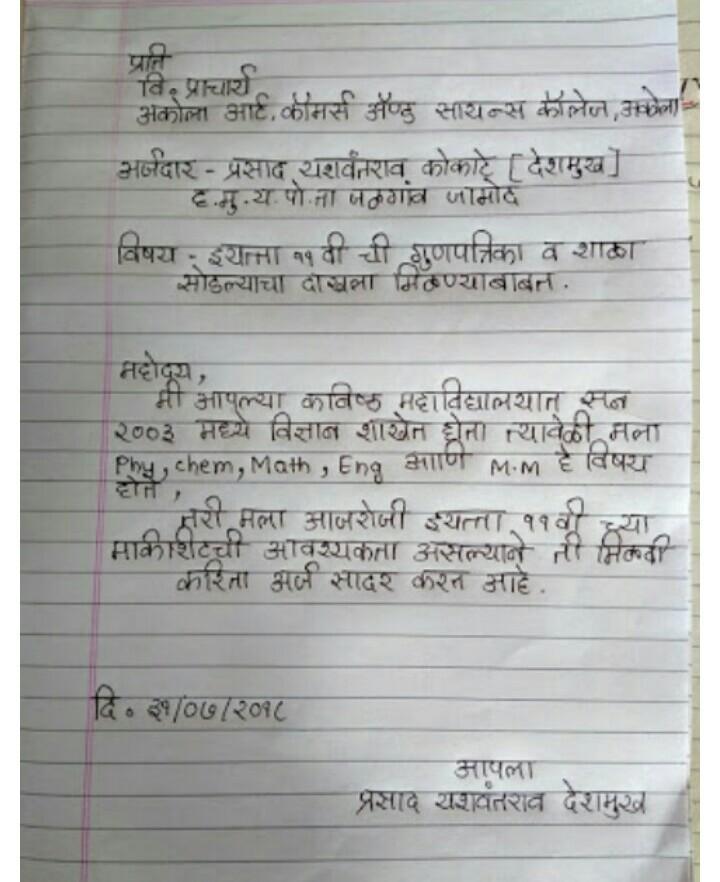 प्रति
वि. प्राचार्य
अकोला आर्ट, कॉमर्स अ‍ॅण्ड सायन्स कॉलेज, अकोला
अर्जदार - प्रसाद यशवंतराव कोकाटे [देशमुख]
ह.मु.य. पो.ता जळगांव जामोद
विषय - इयत्ता ११ वी ची गुणपत्रिका व शाळा
सोडल्याचा दाखला मिळण्याबाबत.
महोदय,
मी आपल्या कनिष्ठ महाविद्यालयात सन
२००३ मध्ये विज्ञान शाखेत होतो त्यावेळी मला
Phy, chem, Math, Eng आणि M.M हे विषय
होते,
तरी मला आजरोजी इयत्ता ११वी च्या
मार्कशिटची आवश्यकता असल्याने ती मिळवी
करिता अर्ज सादर करत आहे.
दि. ३१/०७/२०१८
आपला
प्रसाद यशवंतराव देशमुख